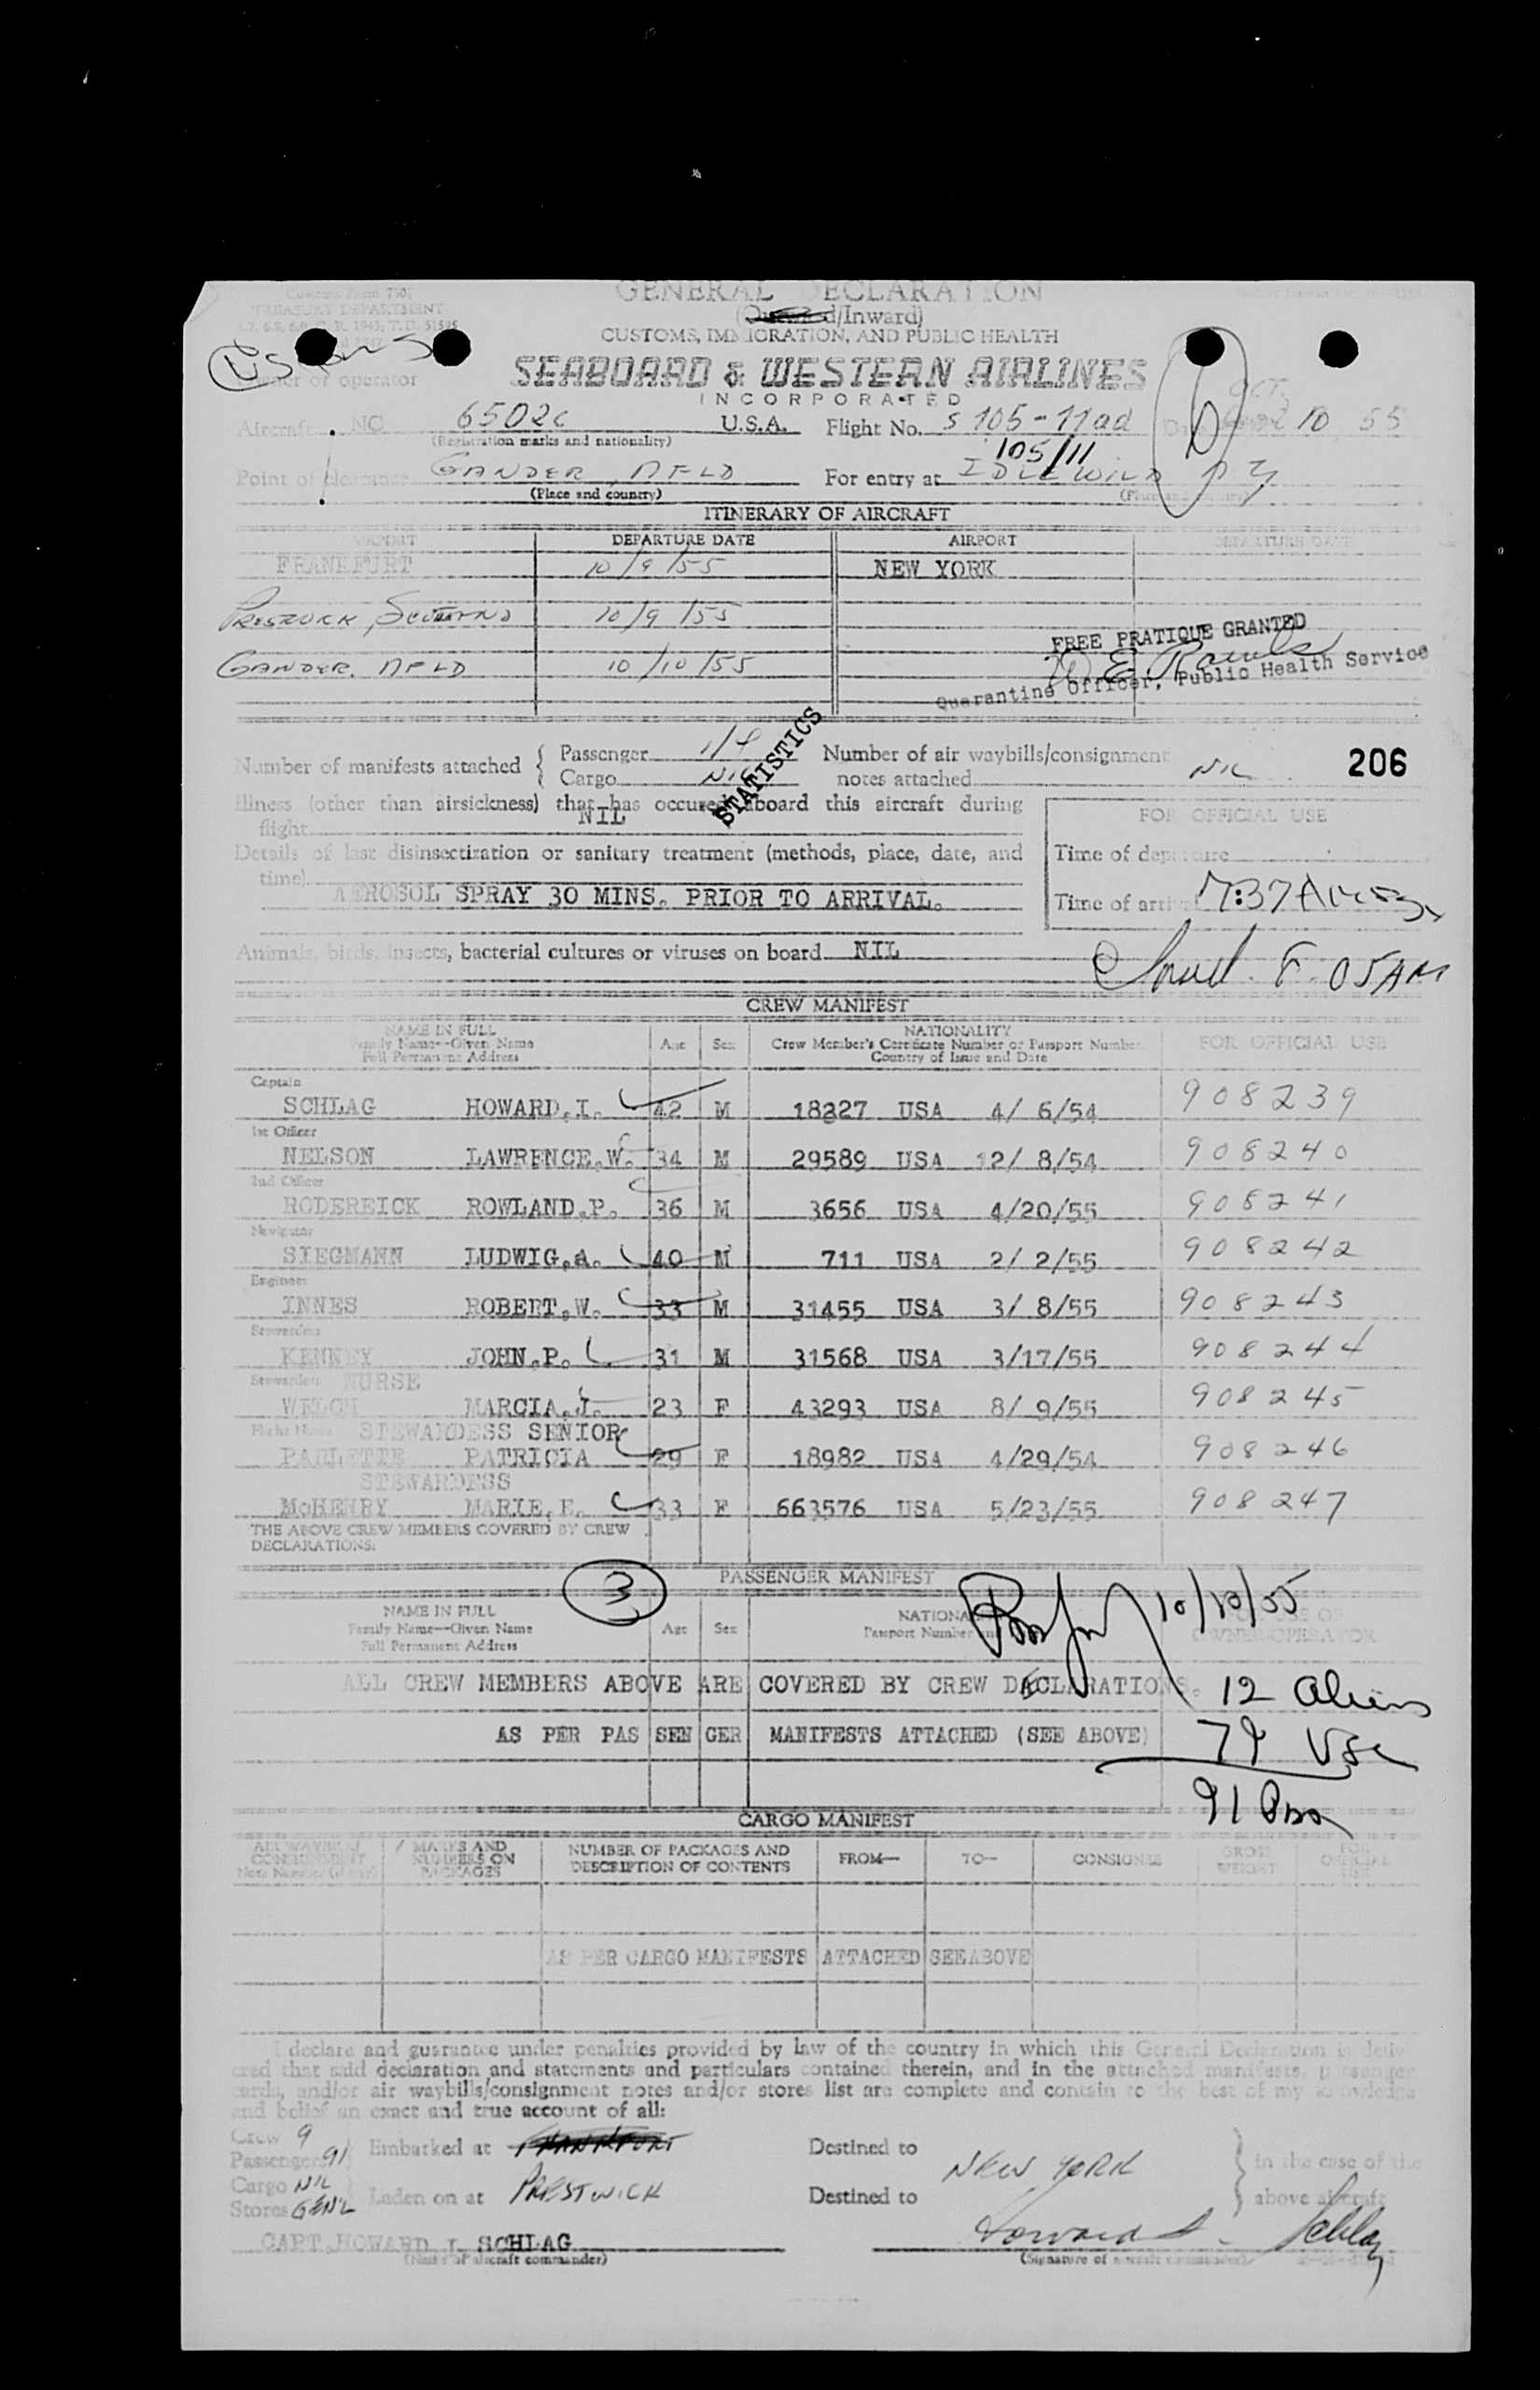 Customs Form 7507
TREASURY DEPARTMENT
GENERAL DECLARATION
/Inward)
CUSTOMS, IMMIGRATION, AND PUBLIC HEALTH
Owner or operator
SEABOARD & WESTERN AIRLINES
INCORPORATED
Aircraft NC 6502C U.S.A. Flight No. S 105-11ad OCT. 10 55
(Registration marks and nationality)
105/11
Point of clearance GANDER, NFLD For entry at IDLEWILD NY
(Place and country)
ITINERARY OF AIRCRAFT
AIRPORT DEPARTURE DATE AIRPORT DEPARTURE DATE
FRANKFURT 10/9/55 NEW YORK
10/9/55
FREE PRATIQUE GRANTED
GANDER. NFLD 10/10/55
Quarantine Officer, Public Health Service
STATISTICS
Number of manifests attached { Passenger 1/4 Number of air waybills/consignment
Cargo NIL notes attached NIL 206
Illness (other than airsickness) that has occured aboard this aircraft during
flight NIL
FOR OFFICIAL USE
Details of last disinsectization or sanitary treatment (methods, place, date, and
time)
Time of departure
AEROSOL SPRAY 30 MINS. PRIOR TO ARRIVAL.
Time of arrival 7:37A
Animals, birds, insects, bacterial cultures or viruses on board NIL
05AM
CREW MANIFEST
NAME IN FULL
Family Name--Given Name
Full Permanent Address
Age Sex
NATIONALITY
Crew Member's Certificate Number or Passport Number
Country of Issue and Date
FOR OFFICIAL USE
Captain
SCHLAG HOWARD.I. 42 M 18327 USA 4/ 6/54 908239
1st Officer
NELSON LAWRENCE.W. 34 M 29589 USA 12/ 8/54 908240
2nd Officer
RODEREICK ROWLAND.P. 36 M 3656 USA 4/20/55 908241
Navigator
SIEGMANN LUDWIG.A. 40 M 711 USA 2/ 2/55 908242
Engineer
INNES ROBERT.W. 33 M 31455 USA 3/ 8/55 908243
Stewardess
KENNEY JOHN.P. 31 M 31568 USA 3/17/55 908244
Stewardess NURSE
WELCH MARCIA.I. 23 F 43293 USA 8/ 9/55 908245
Flight Nurse STEWARDESS SENIOR
PARLETTE PATRICIA 29 F 18982 USA 4/29/54 908246
STEWARDESS
McHENRY MARIE.E. 33 F 663576 USA 5/23/55 908247
THE ABOVE CREW MEMBERS COVERED BY CREW
DECLARATIONS:
3
PASSENGER MANIFEST
10/10/55
NAME IN FULL
Family Name--Given Name
Full Permanent Address
Age Sex
Passport Number
OWNER-OPERATOR
ALL CREW MEMBERS ABOVE ARE COVERED BY CREW DECLARATIONS.
12 aliens
AS PER PASSENGER MANIFESTS ATTACHED (SEE ABOVE)
79 USC
91
CARGO MANIFEST
AIR WAYBILL/
CONSIGNMENT
MARKS AND
NUMBERS ON
PACKAGES
NUMBER OF PACKAGES AND
DESCRIPTION OF CONTENTS
FROM— TO— CONSIGNEE
GROSS
WEIGHT
FOR
OFFICIAL
USE
AS PER CARGO MANIFESTS ATTACHED SEE ABOVE
I declare and guarantee under penalties provided by law of the country in which this General Declaration is deliv-
ered that said declaration and statements and particulars contained therein, and in the attached manifests, passenger
cards, and/or air waybills/consignment notes and/or stores list are complete and contain to the best of my knowledge
and belief an exact and true account of all:
Crew 9
Passengers 91 Embarked at FRANKFURT Destined to NEW YORK in the case of the
Cargo NIL
Stores GEN'L Laden on at PRESTWICK Destined to above aircraft
CAPT.HOWARD I. SCHLAG Howard I. Schlag
(Name of aircraft commander) (Signature of aircraft commander)